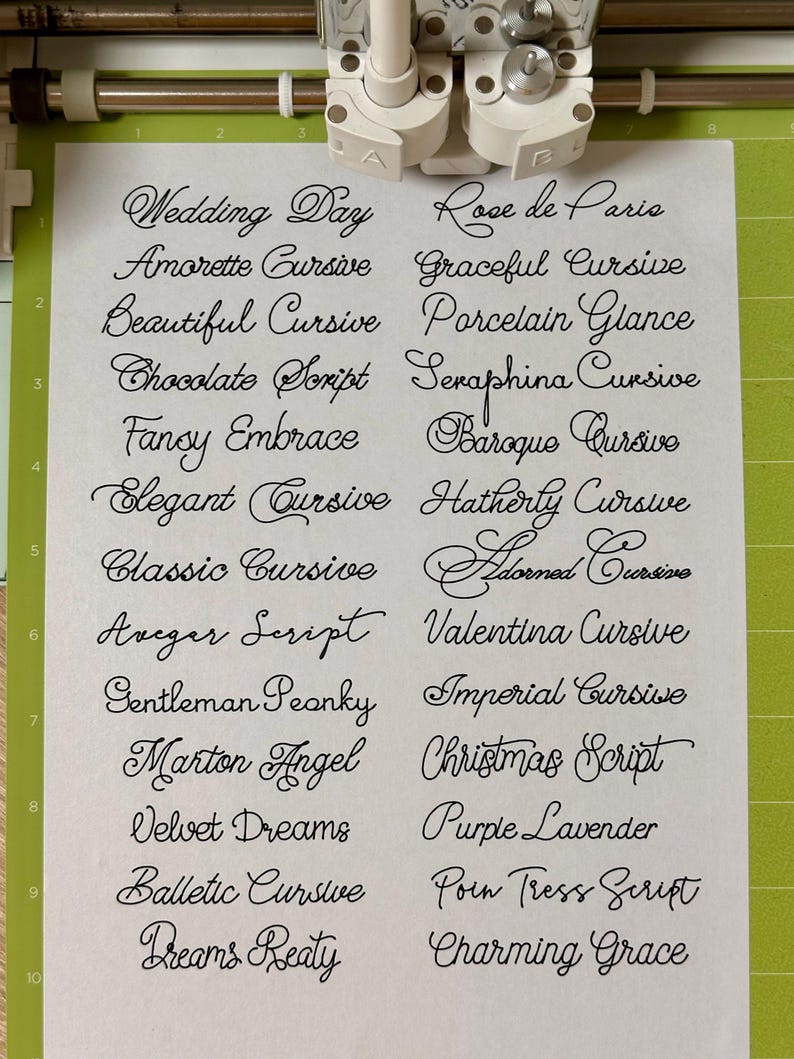 A B
1 2 3 7 8
Wedding Day Rose de Paris
1
Amorette Cursive Graceful Cursive
2
Beautiful Cursive Porcelain Glance
3
Chocolate Script Seraphina Cursive
Fansy Embrace Baroque Cursive
4
Elegant Cursive Hatherly Cursive
5
Classic Cursive Adorned Cursive
6
Avegar Script Valentina Cursive
Gentleman Peonky Imperial Cursive
7
Marton Angel Christmas Script
8
Velvet Dreams Purple Lavender
9
Balletic Cursive Poin Tress Script
Dreams Reaty Charming Grace
10